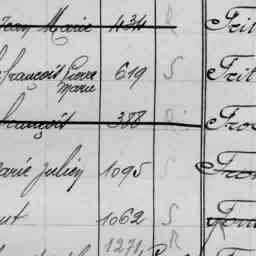 Jean Marie 434 R Frit
François Pierre Marie 619 S Frit
François 388 R Fro
Marie Julien 1095 S Fro
1062 S
1271 R